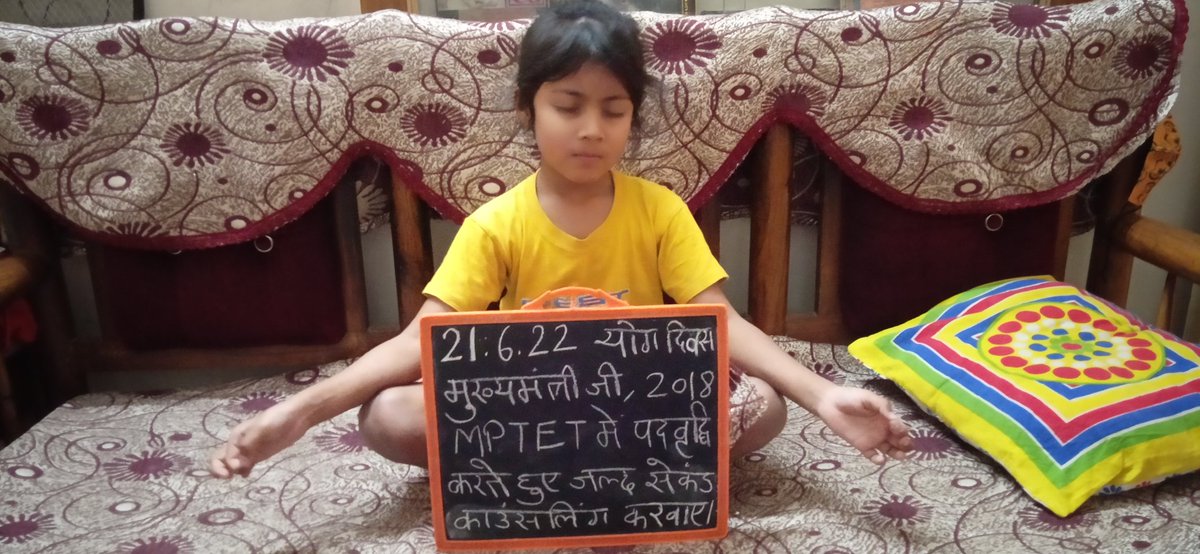 21.6.22 योग दिवस
मुख्यमंत्री जी, 2018
MPTET में पदवृद्धि
करते हुए जल्द सेकंड
काउंसलिंग करवाए।